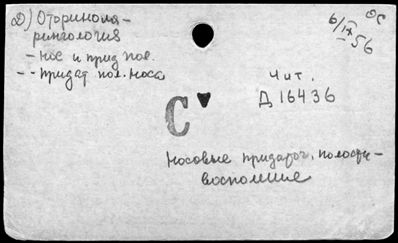 Д) Оториноля-
рингология
- Нос и прид. пол.
- - Придат пол. носа
6/IX 56
ОС
Чит.
Д 16436
С
Носовые придаточ. полости -
воспоминие